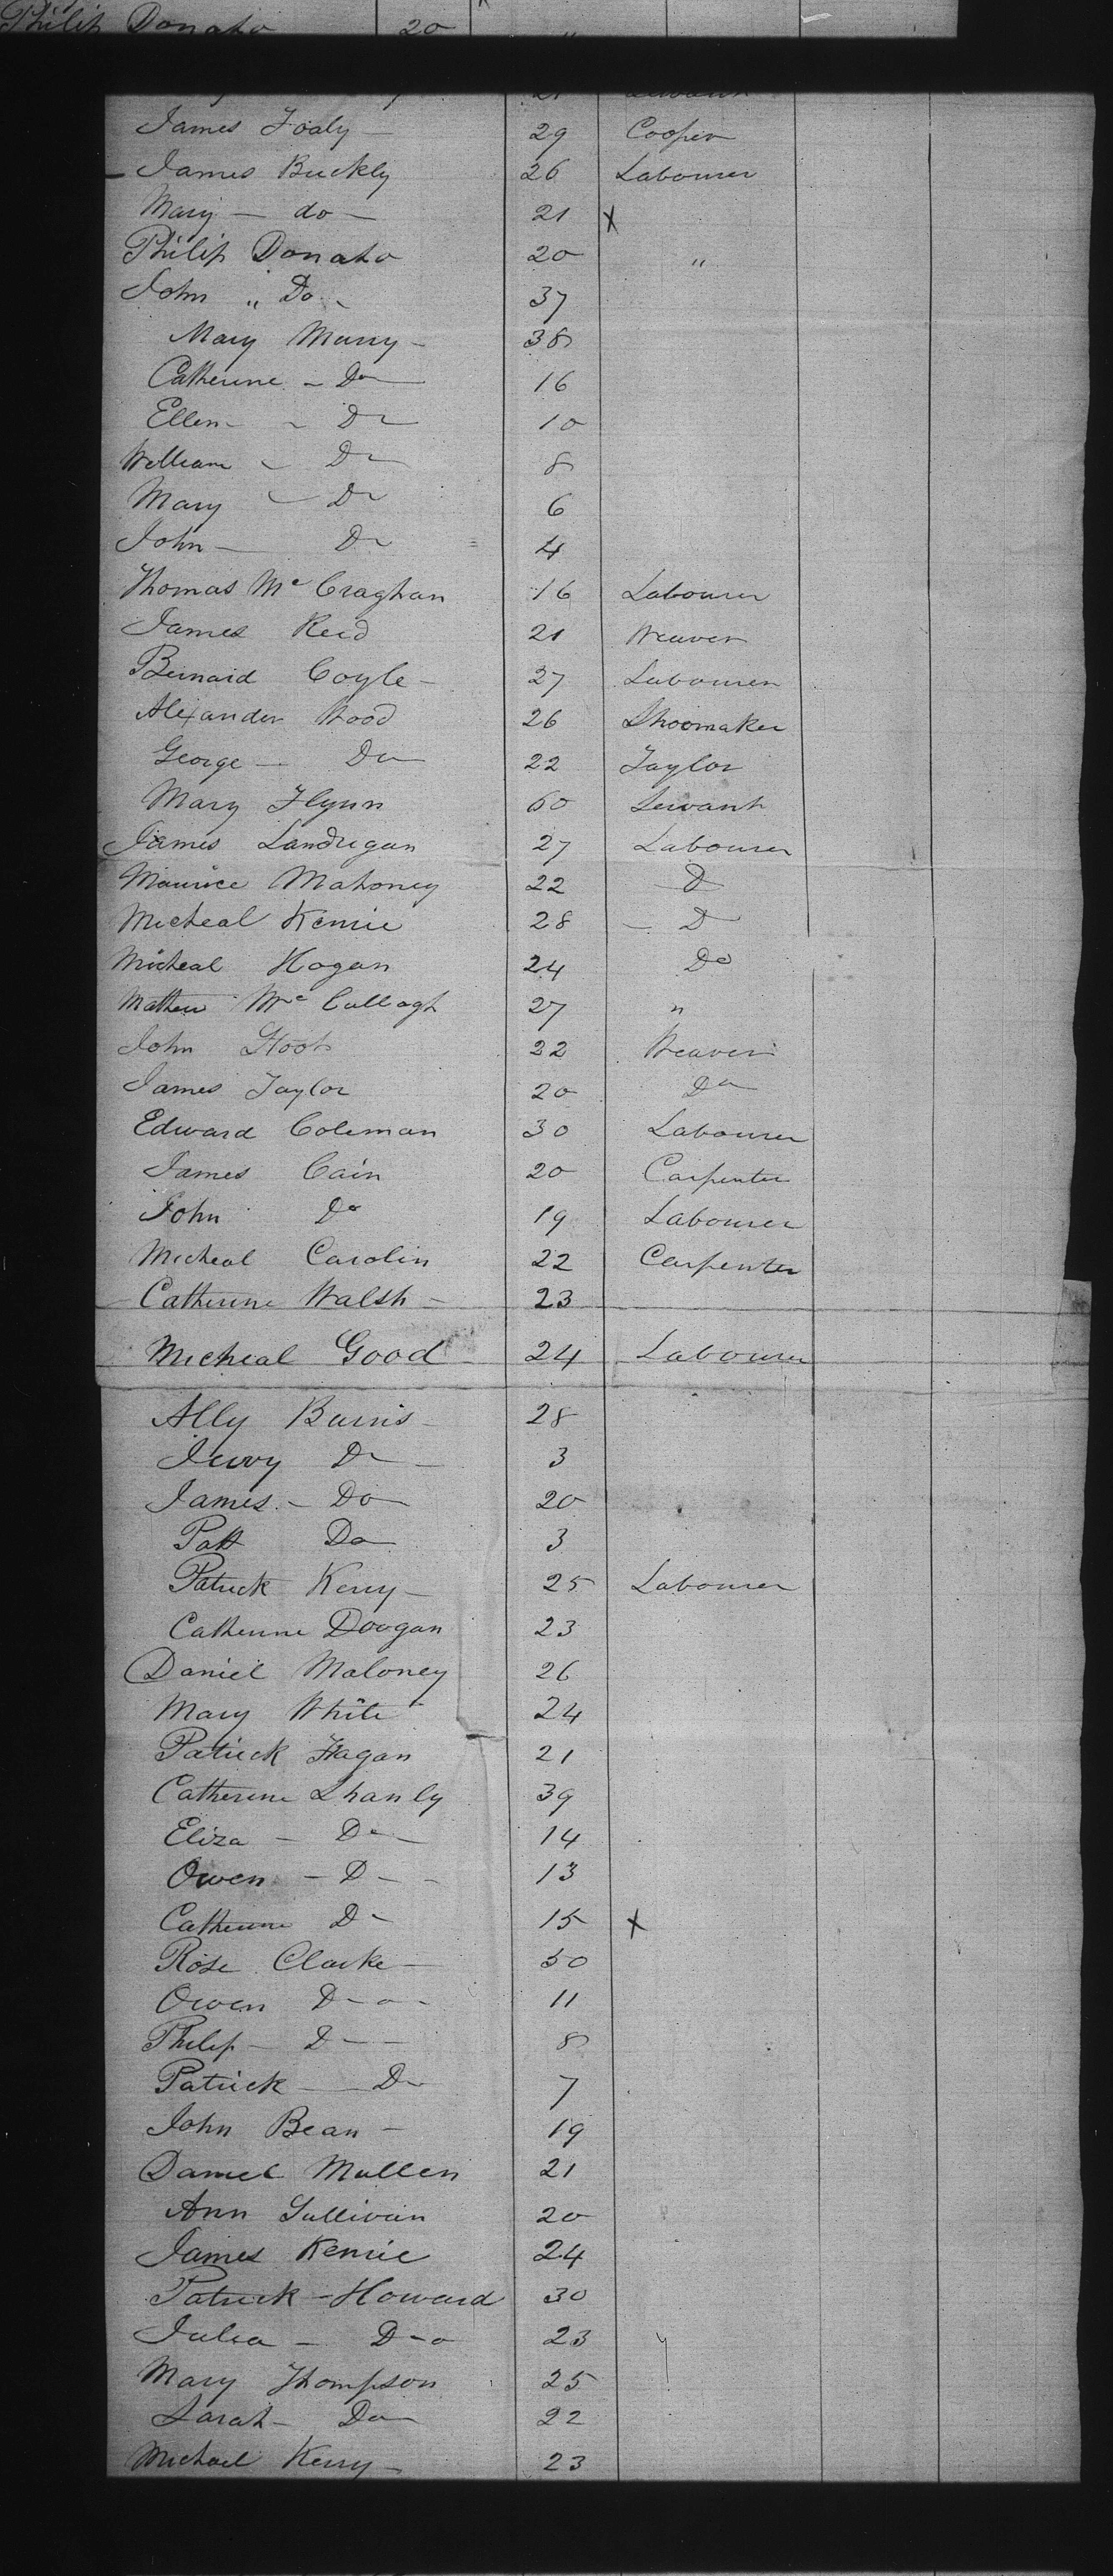 Philip Donaho 20 "
21
James Foaly 29 Cooper
James Buckly 26 Labourer
Mary — do — 21 X
Philip Donaho 20 "
John " Do 37
Mary Murry 38
Catherine - Do 16
Ellen - Do 10
William - Do 8
Mary - Do 6
John - Do 4
Thomas Mc Craghan 16 Labourer
James Reid 21 Weaver
Bernard Coyle 27 Labourer
Alexander Wood 26 Shoomaker
George - Do 22 Taylor
Mary Flynn 60 Servant
James Landrigan 27 Labourer
Maurice Mahoney 22 D
Micheal Kenrie 28 D
Micheal Hogan 24 Do
Mathew Mc Cullogh 27 "
John 22 Weaver
James Taylor 20 Do
Edward Coleman 30 Labourer
James Cain 20 Carpenter
John Do 19 Labourer
Micheal Carolin 22 Carpenter
Catherine Walsh - 23
Micheal Good 24 Labourer
Ally Burns - 28
Do 3
James - Do 20
Patt Do 3
Patrick Kerry - 25 Labourer
Catherine Doogan 23
Daniel Maloney 26
Mary White 24
Patrick Fagan 21
Catherine Shanly 39
Eliza - Do 14
Owen - D - 13
Catherine D - 15 X
Rose Clarke - 50
Owen D - o - 11
Philip - D - 8
Patrick - Do 7
John Bean - 19
Daniel Mullen 21
Ann Sullivan 20
James Kenrie 24
Patrick - Howard 30
Julia - D - o 23
Mary Thompson 25
Sarah - Do 22
Michael Kerry - 23